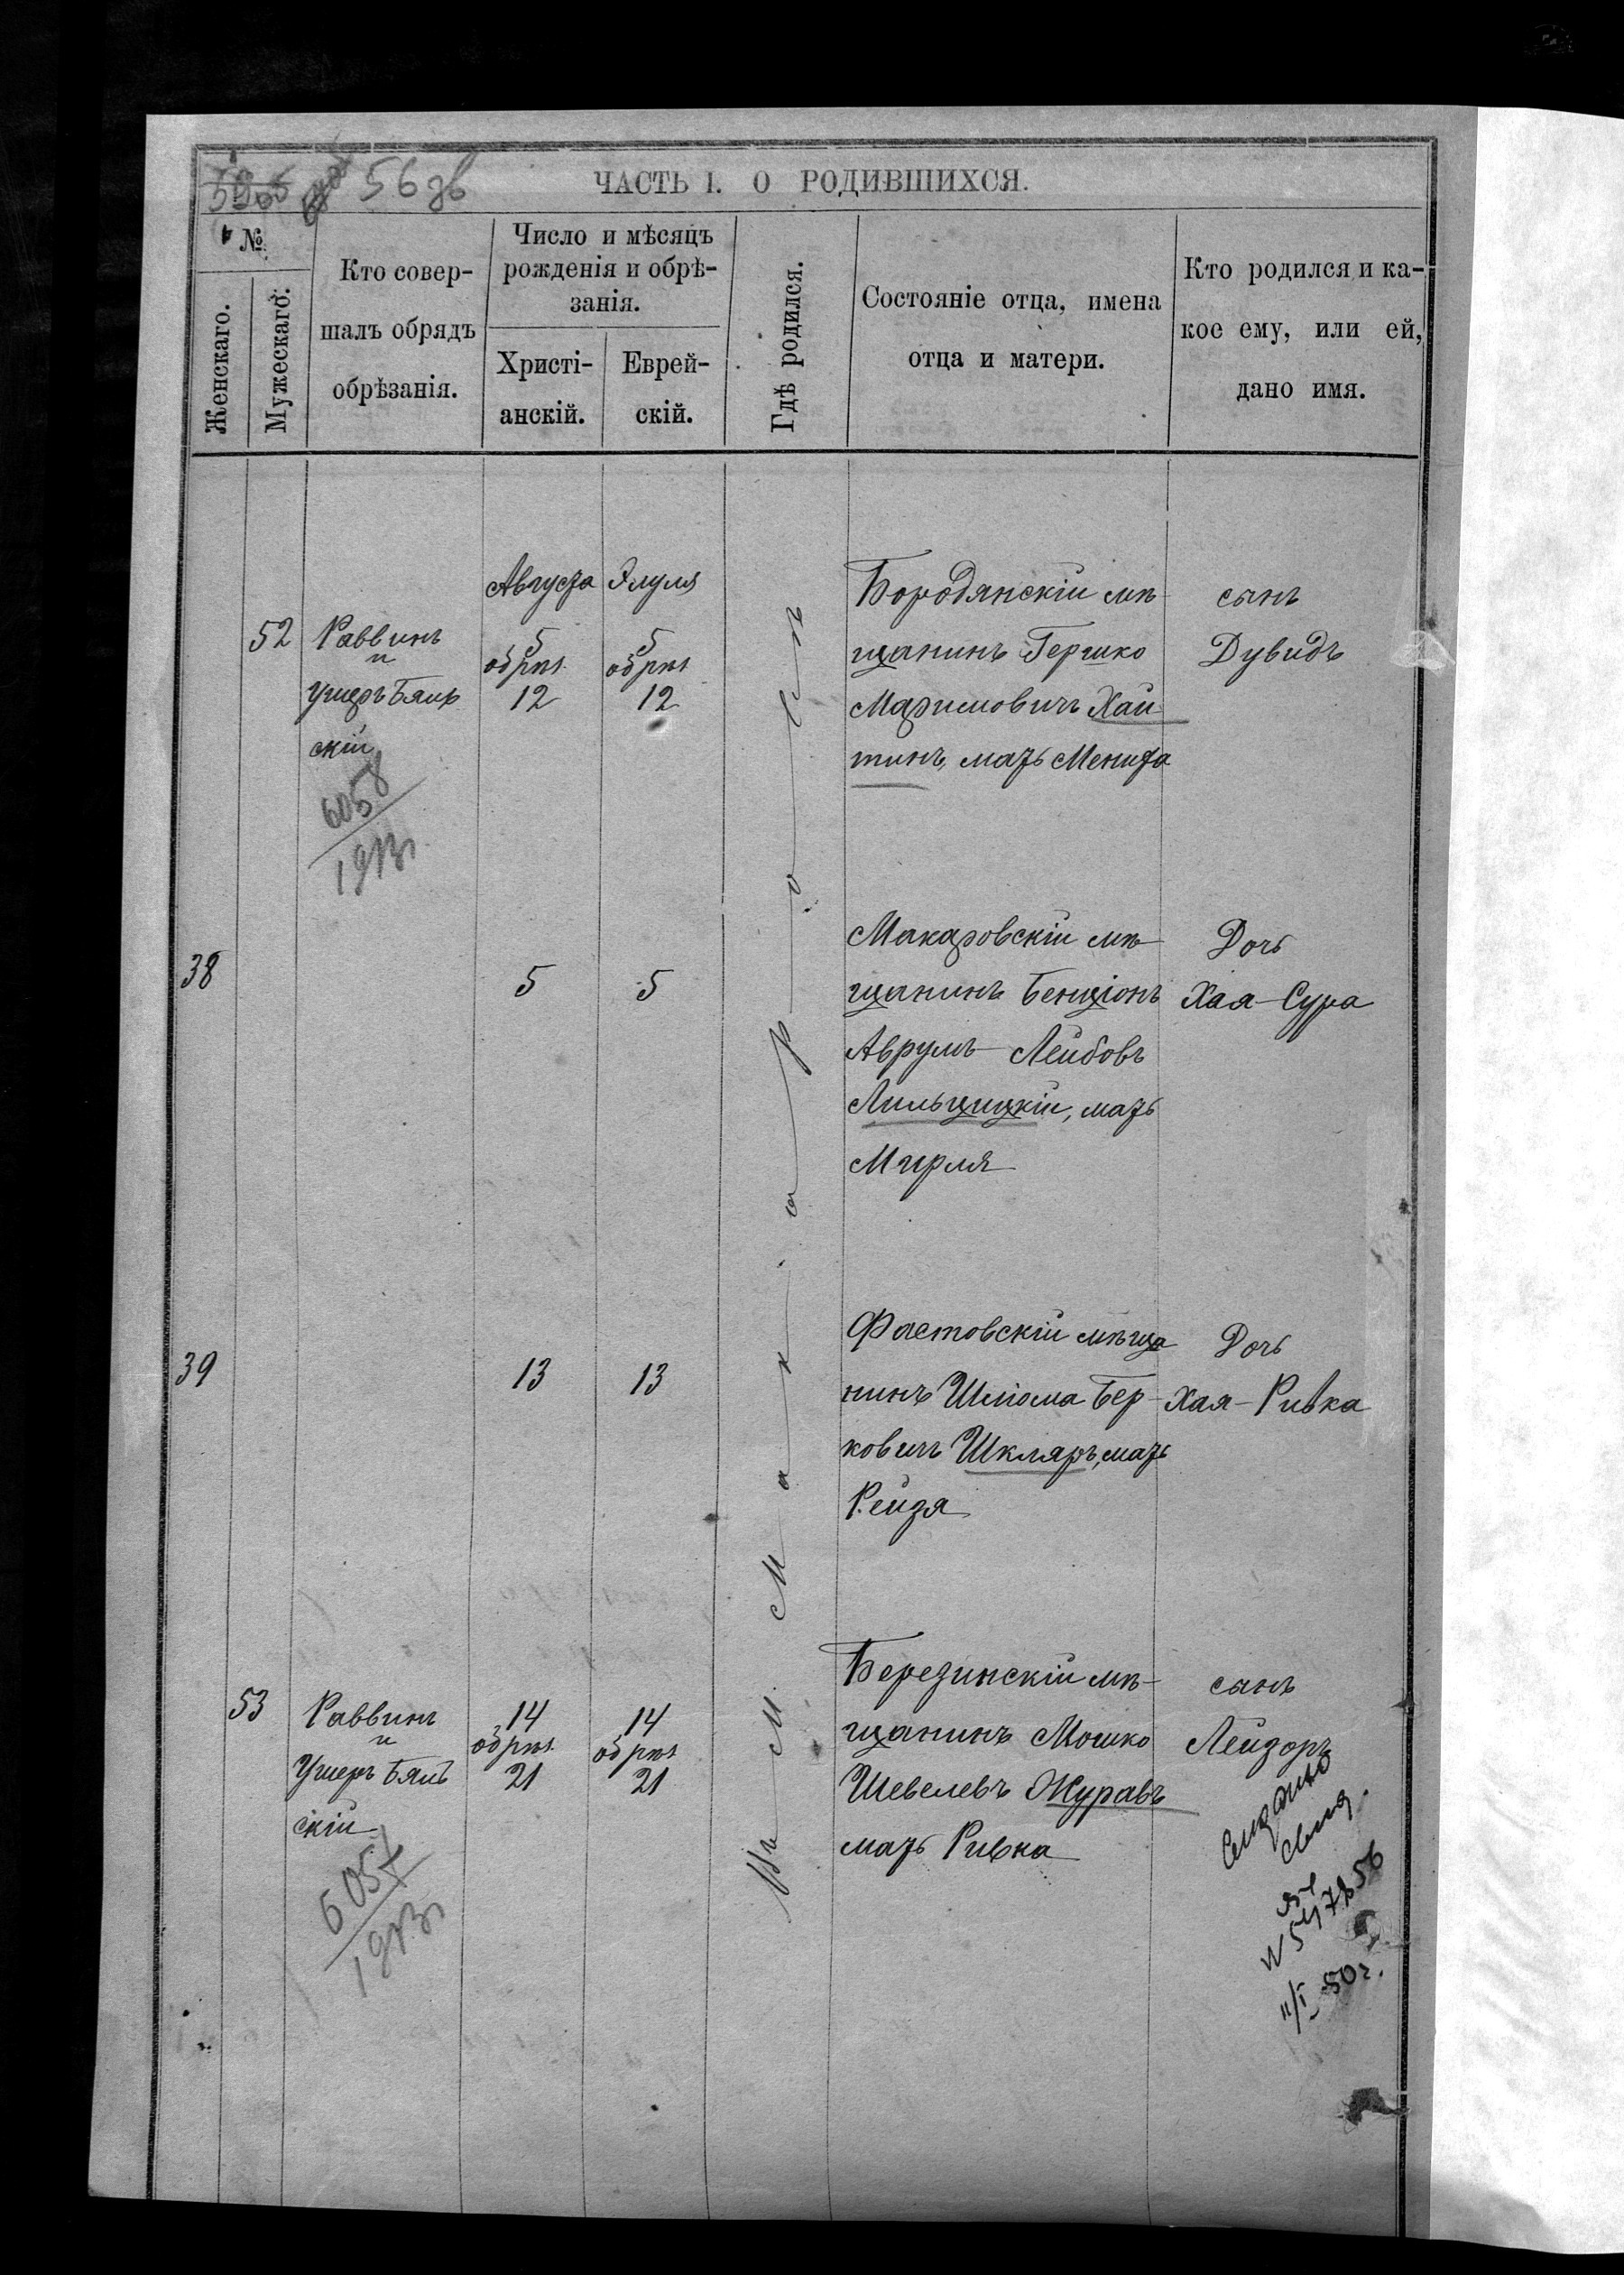 56 зв
ЧАСТЬ I. О РОДИВШИХСЯ.
№
Женскаго.
Мужескаго.
Кто совер-
шалъ обрядъ
обрѣзанія.
Число и мѣсяцъ
рожденія и обрѣ-
занія.
Христі-
анскій.
Еврей-
скій.
Гдѣ родился.
Состояніе отца, имена
отца и матери.
Кто родился и ка-
кое ему, или ей,
дано имя.
Въ М. Макаровѣ
52
Раввинъ
и
Ушеръ Бялы
скій
6058
1913
Августа
5
обрѣз.
12
Элуля
5
обрѣз
12
Бородянскій мѣ-
щанинъ Гершко
Маримовичъ Хай
тинъ, мать Менита
сынъ
Дувидъ
38
5
5
Макаровскій мѣ-
щанинъ Бенціонъ
Аврумъ-Лейбовъ
Лильчицкій, мать
Мирля
Дочь
Хая-Сура
39
13
13
Фастовскій мѣща
нинъ Шлiома Бер-
ковичъ Шкляръ, мать
Рейзя
Дочь
Хая-Ривка
53
Раввинъ
и
Ушеръ Бялы
скій
6057
1913
14
обрѣз.
21
14
обрѣз
21
Березинскій мѣ-
щанинъ Мошко
Шевелевъ Журавъ
мать Ривка
сынъ
Лейзоръ
11/I-50 г.